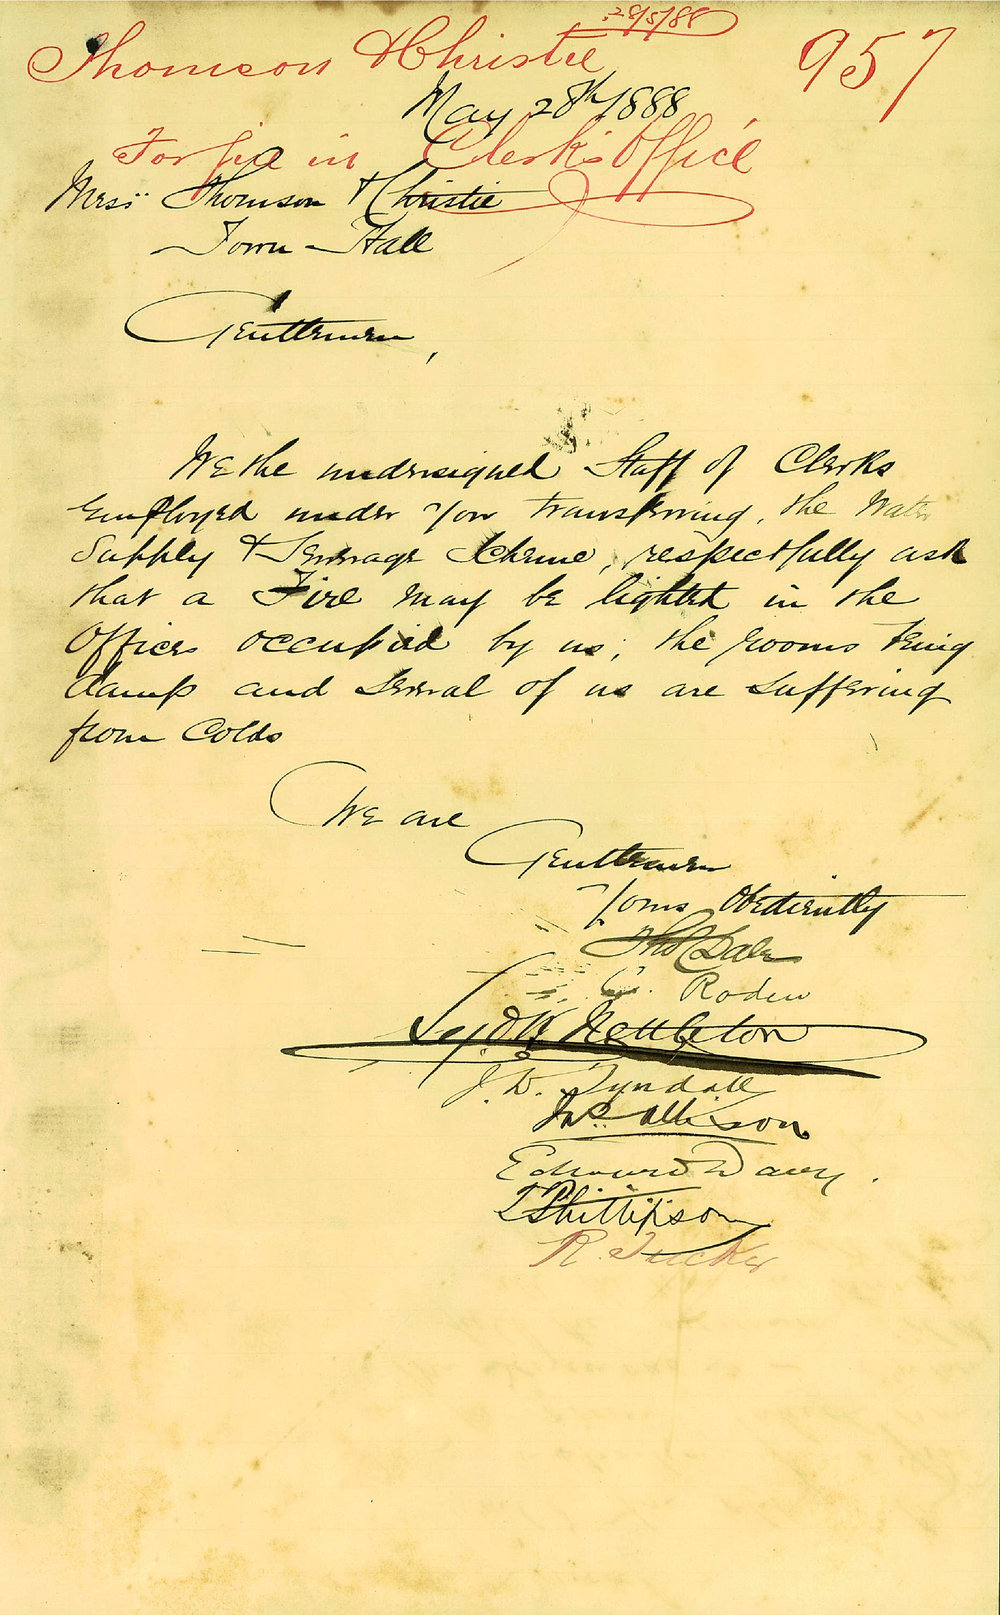 28/5/88
Thomson & Christie
957
May 28th 1888
For fire in Clerks Office
Messrs Thomson & Christie
Town Hall
Gentlemen,
We the undersigned Staff of Clerks
Employed under your transferring, the Water
Supply & Sewerage Scheme, respectfully ask
that a Fire may be lighted in the
Offices occupied by us; the rooms being
damp and several of us are suffering
from Colds
We are
Gentlemen
Yours Obediently
Thos Dale
C. Roden
Nettleton
J. W. Tyndall
Jno. Allison
Edward Davy.
Phillipson
R. Tucker